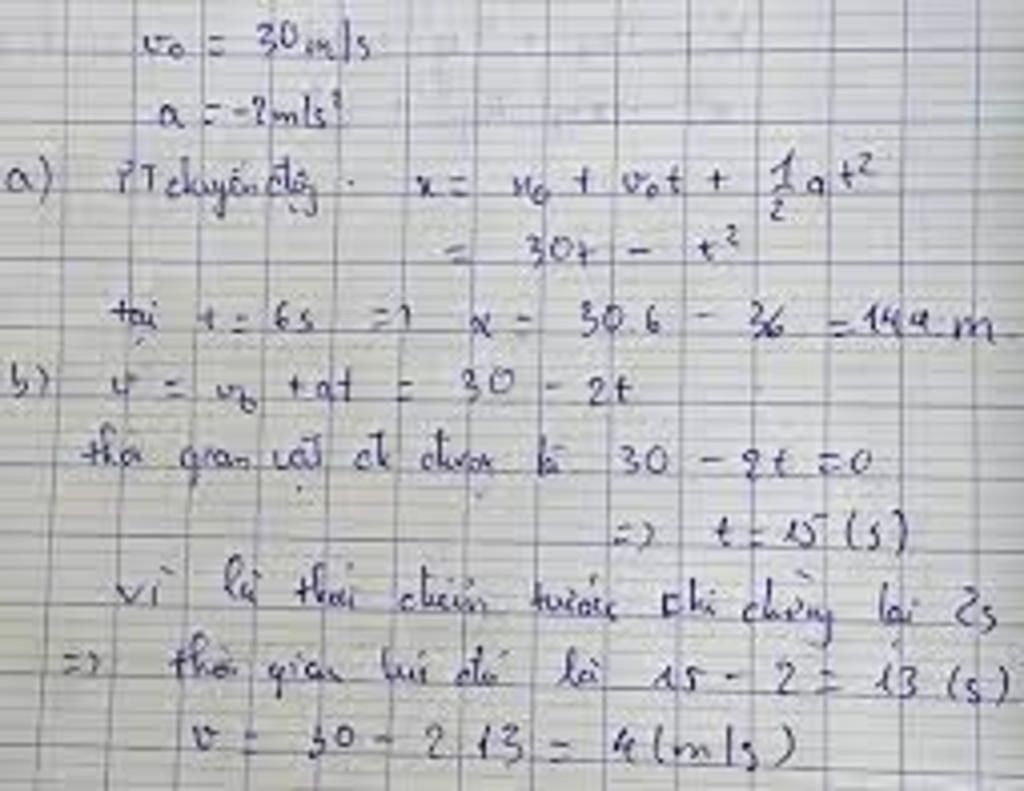 v₀ = 30 m/s
a = -2m/s²
a) PT chuyển động. x = x₀ + v₀t + 1/2 at²
= 30t - t²
tại t = 6s => x = 30.6 - 36 = 144 m
b) v = v₀ + at = 30 - 2t
thời gian vật đi được là 30 - 2t = 0
=> t = 15 (s)
vì thời điểm trước khi dừng lại 2s
=> thời gian lúc đó là 15 - 2 = 13 (s)
v = 30 - 2.13 = 4 (m/s)